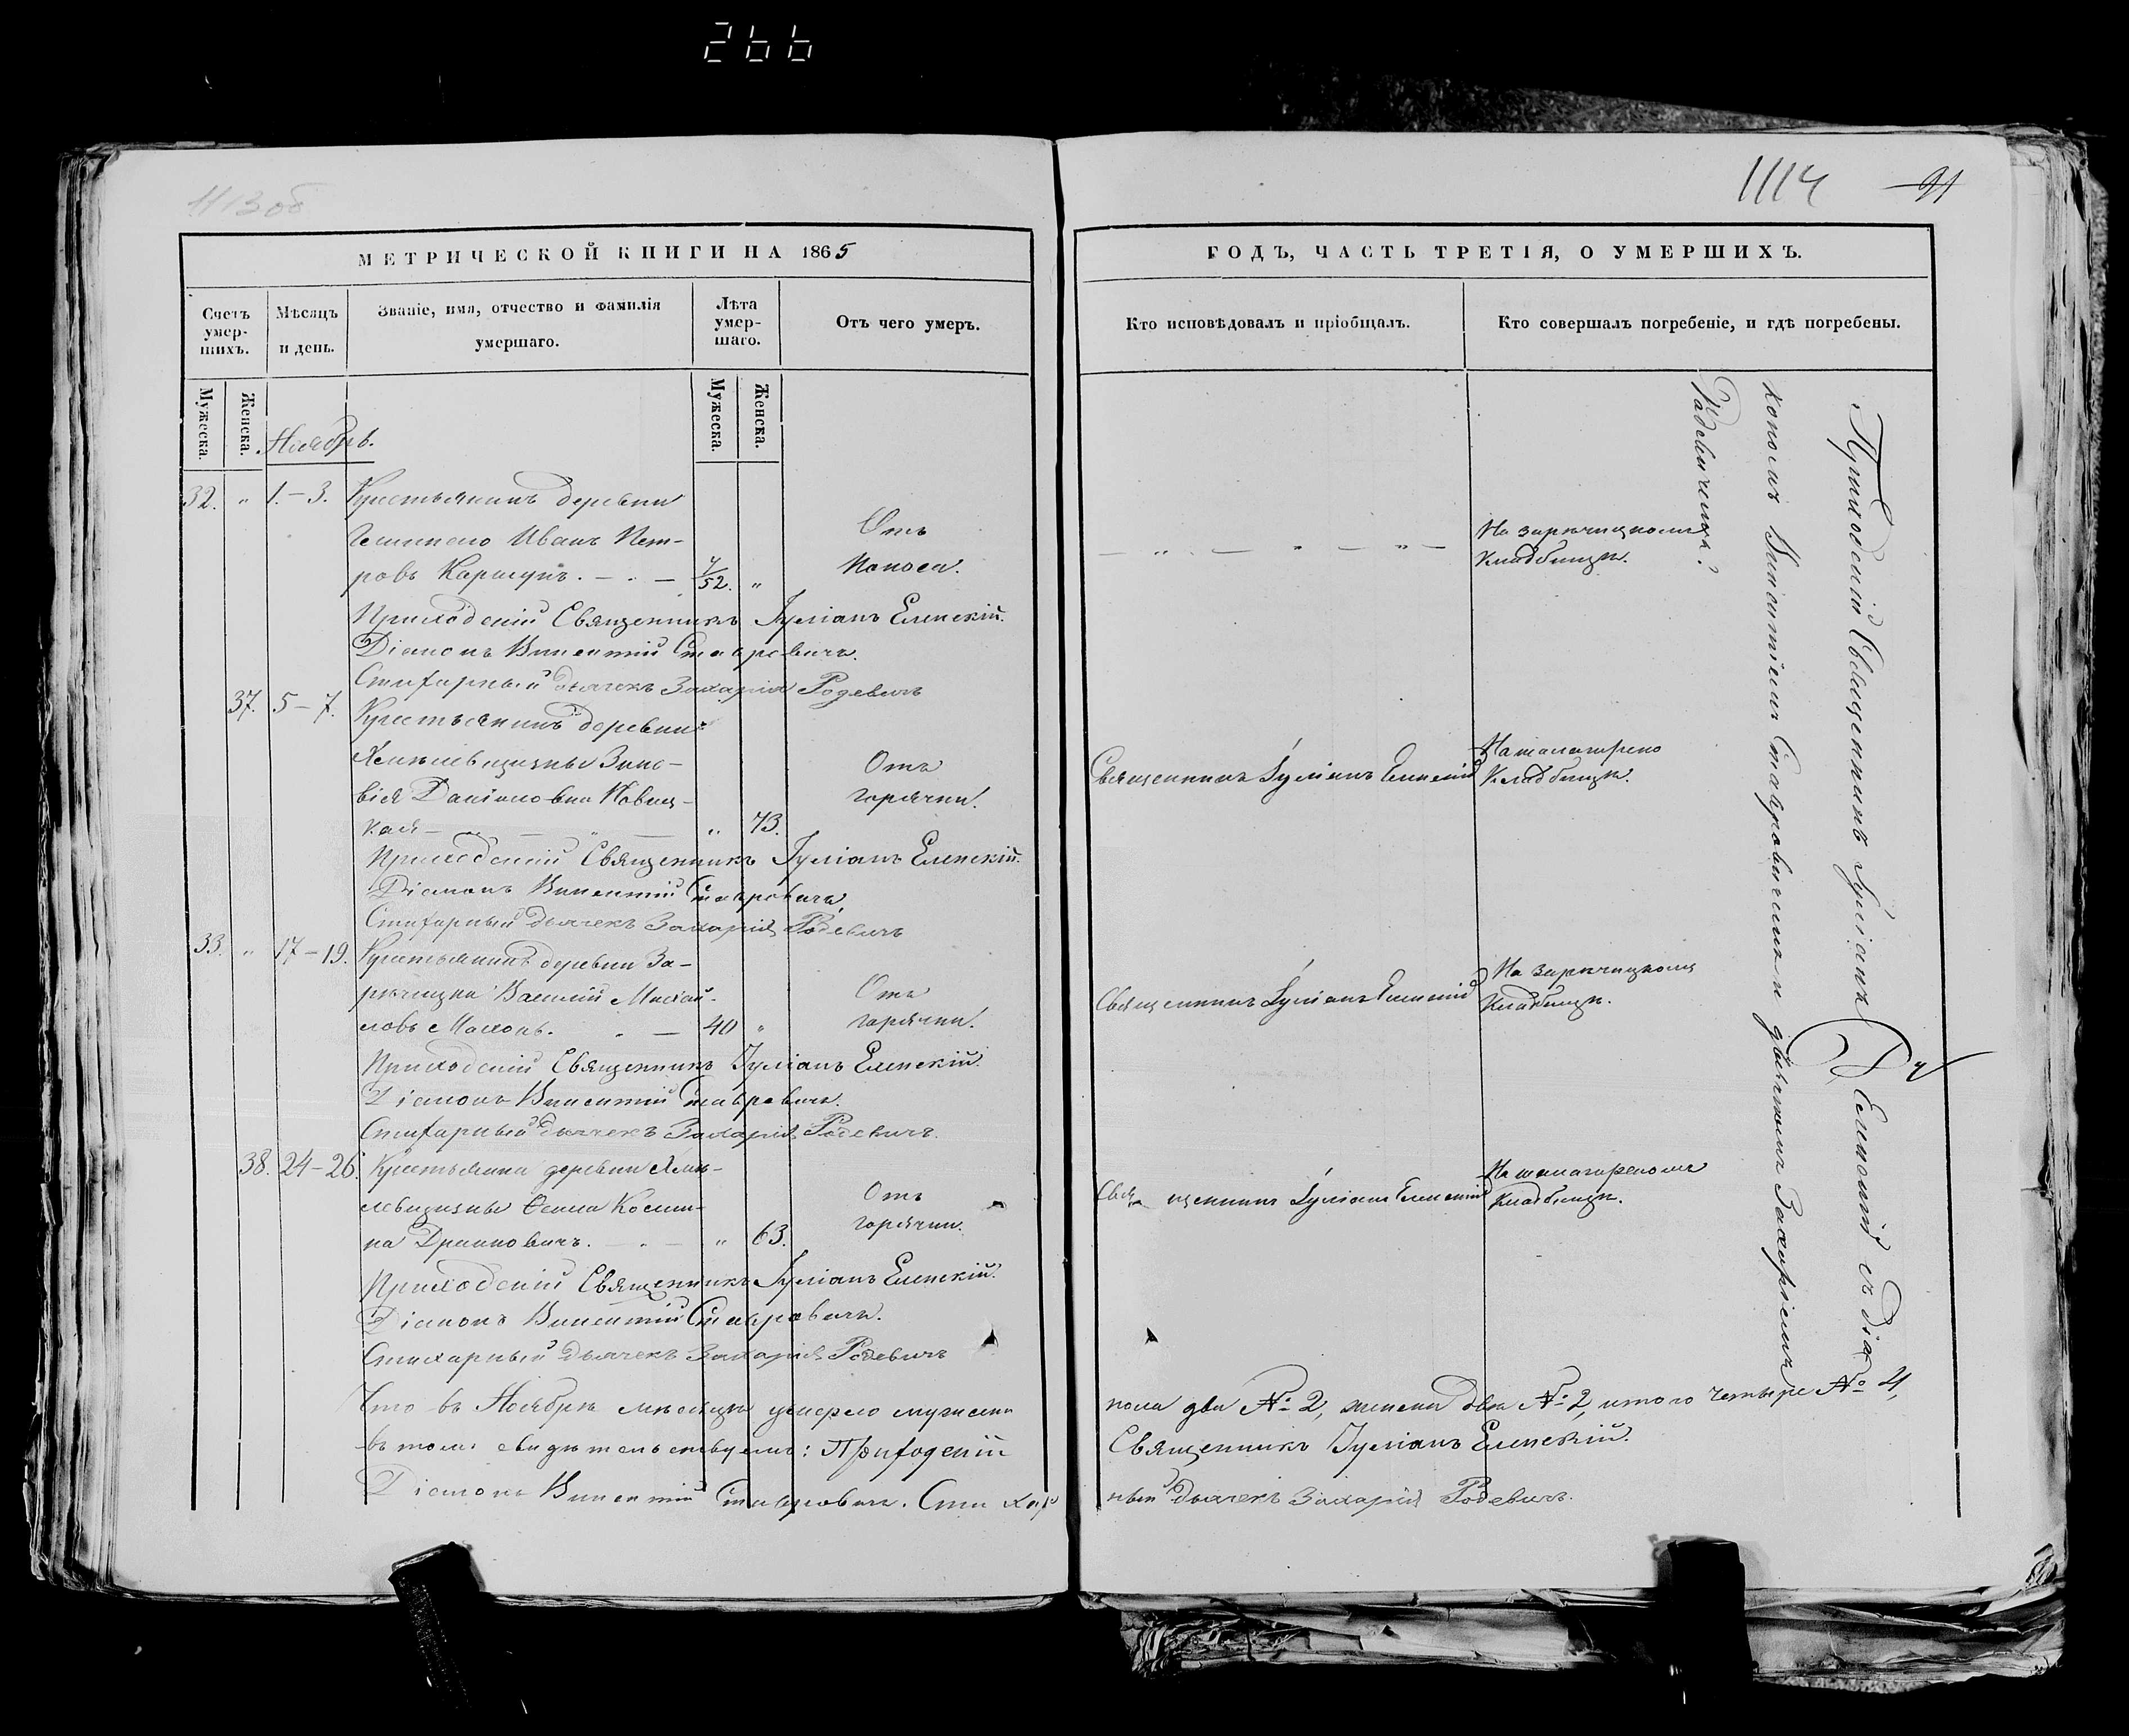 266
1113об
1114
91
МЕТРИЧЕСКОЙ КНИГИ НА 1865
ГОДЪ, ЧАСТЬ ТРЕТІЯ, О УМЕРШИХЪ.
Счетъ умер-шихъ.
Мѣсяцъ и день.
Званіе, имя, отчество и фамилія умершаго.
Лѣта умер-шаго.
Отъ чего умеръ.
Кто исповѣдовалъ и пріобщалъ.
Кто совершалъ погребеніе, и гдѣ погребены.
Мужеска.
Женска.
Мужеска.
Женска.
Ноябрь.
32. " 1.–3. Крестьянинъ деревни
Иванъ Пет-
ровъ 7/52. "
Отъ
Поноса.
На зарѣчицкомъ
Кладбищѣ.
Приходскій Священникъ Іуліанъ Еленскій.
Діаконъ Викентій Ставровичъ.
Стихарный дьячекъ Захарія Родевичъ
37. 5–7. Крестьянинъ деревни
Зино-
вія Даніиловна Новиц-
кая – " 73.
Отъ
горячки.
Священникъ Іуліанъ Еленскій
Кладбищѣ.
Приходскій Священникъ Іуліанъ Еленскій.
Діаконъ Викентій Ставровичъ
Стихарный дьячекъ Захарія Родевичъ
33. " 17–19. Крестьянинъ деревни За-
рѣчицка Василій Михай-
ловъ 40 "
Отъ
горячки.
Священникъ Іуліанъ Еленскій
На зарѣчицкомъ
Кладбищѣ.
Приходскій Священникъ Іуліанъ Еленскій.
Діаконъ Викентій Ставровичъ.
Стихарный дьячекъ Захарія Родевичъ.
38. 24–26. Крестьянка деревни
Косми-
на " 63.
Отъ
горячки.
Священникъ Іуліанъ Еленскій
Кладбищѣ.
Приходскій Священникъ Іуліанъ Еленскій.
Діаконъ Викентій Ставровичъ.
Стихарный дьячекъ Захарія Родевичъ
Что въ Ноябрѣ мѣсяцѣ умерло мужеска
пола два № 2, женска два № 2, итого четыре № 4,
въ томъ свидѣтельствуемъ: Приходскій
Священникъ Іуліанъ Еленскій.
Діаконъ Викентій Ставровичъ. Стихар
ный дьячекъ Захарія Родевичъ.
Приходскій Священникъ Іуліанъ Еленскій съ Діа
кономъ Викентіемъ Ставровичемъ и дьячкомъ Захаріемъ
Радевичемъ.